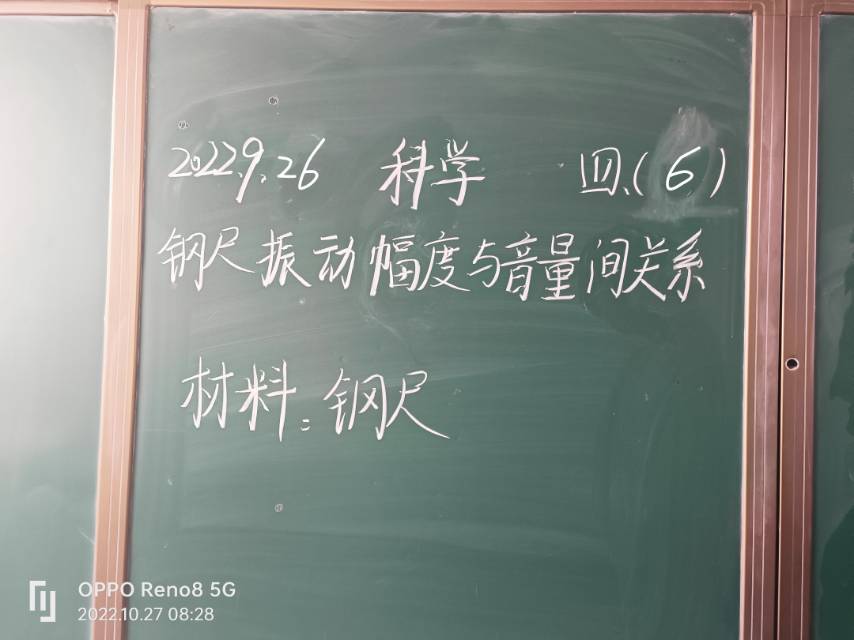 2022.9.26 科学 四.(6)
钢尺振动幅度与音量间关系
材料:钢尺
OPPO Reno8 5G
2022.10.27 08:28